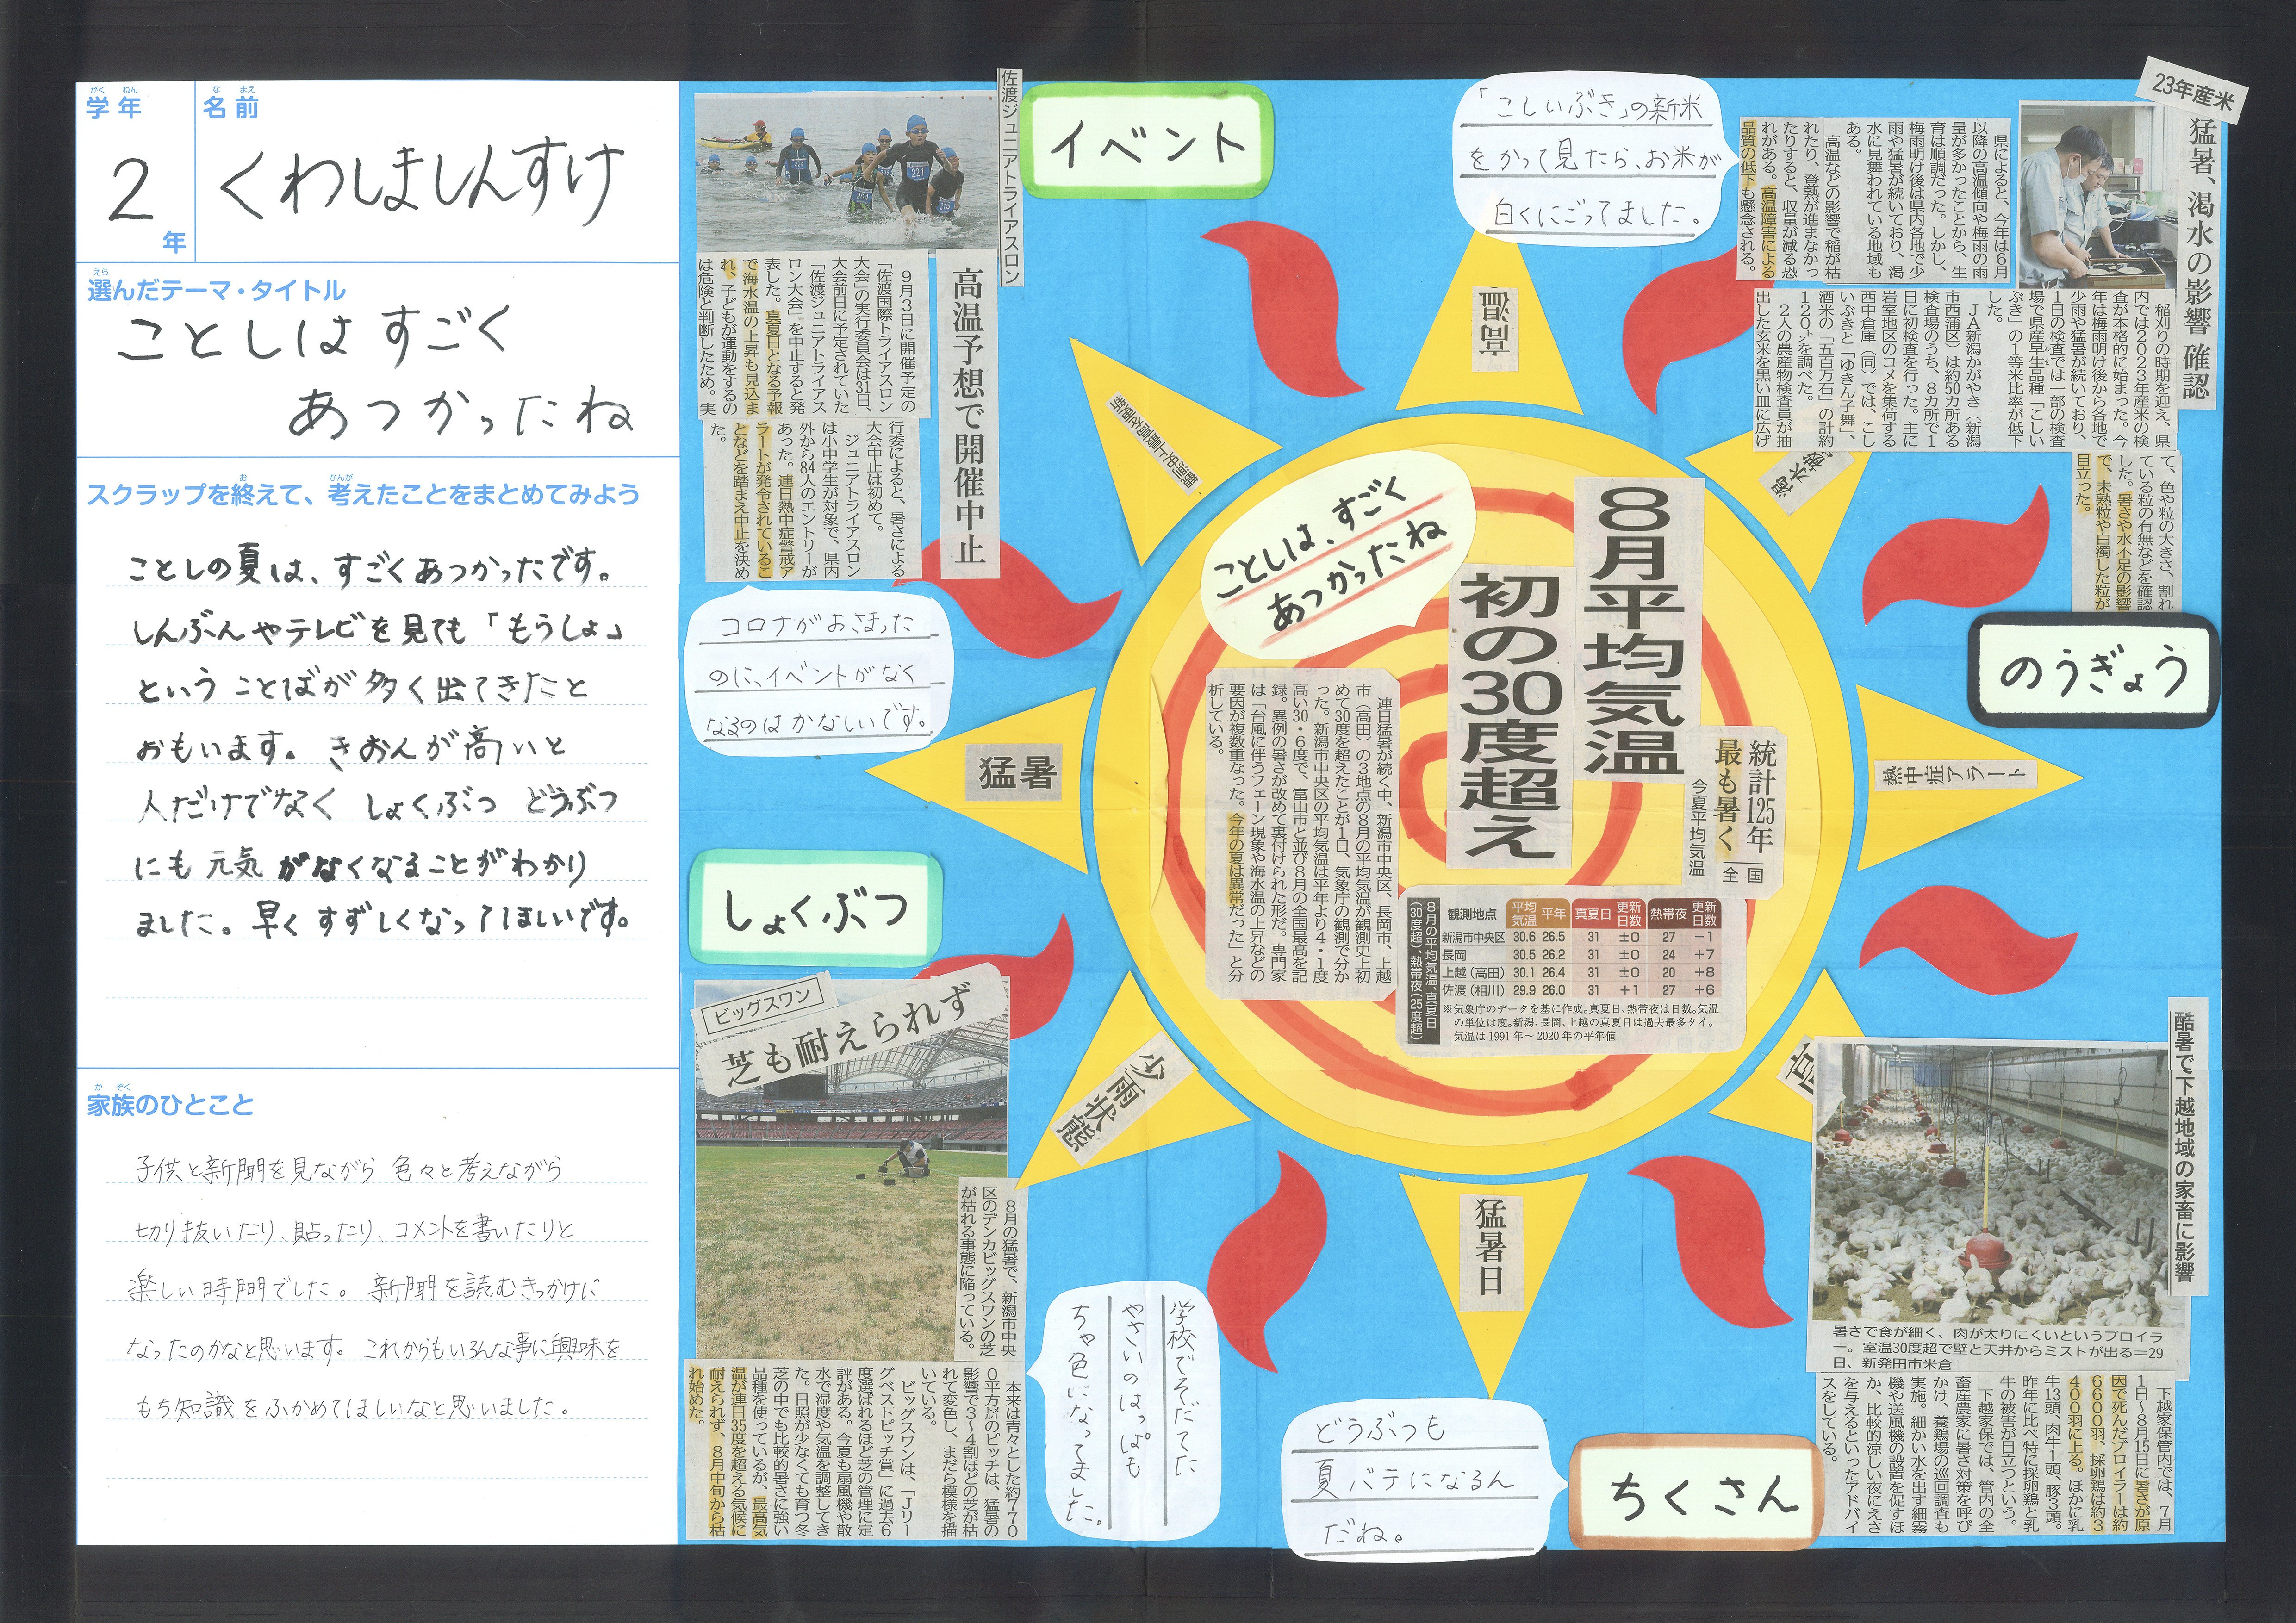 学年
がくねん
2
年
名前
なまえ
くわしましんすけ
選んだテーマ・タイトル
えら
ことしは すごく
あつかったね
スクラップを終えて、考えたことをまとめてみよう
お
かんが
ことしの夏は、すごくあつかったです。
しんぶんやテレビを見ても「もうしょ」
ということばが多く出てきたと
おもいます。きおんが高いと
人だけでなく しょくぶつ どうぶつ
にも元気がなくなることがわかり
ました。早くすずしくなってほしいです。
家族のひとこと
かぞく
子供と新聞を見ながら 色々と考えながら
切り抜いたり、貼ったり、コメントを書いたりと
楽しい時間でした。新聞を読むきっかけに
なったのかなと思います。これからもいろんな事に興味を
もち知識をふかめてほしいなと思いました。
佐渡ジュニアトライアスロン
高温予想で開催中止
９月３日に開催予定の
「佐渡国際トライアスロン
大会」の実行委員会は31日、
大会前日に予定されていた
「佐渡ジュニアトライアス
ロン大会」を中止すると発
表した。真夏日となる予報
で海水温の上昇も見込ま
れ、子どもが運動をするの
は危険と判断したため。実
行委によると、暑さによる
大会中止は初めて。
ジュニアトライアスロン
は小中学生が対象で、県内
外から84人のエントリーが
あった。連日熱中症警戒ア
ラートが発令されているこ
となどを踏まえ中止を決め
た。
イベント
コロナがおさまった
のに、イベントがなく
なるのはかなしいです。
しょくぶつ
ビッグスワン
芝も耐えられず
８月の猛暑で、新潟市中央
区のデンカビッグスワンの芝
が枯れる事態に陥っている。
本来は青々とした約７７０
０平方㍍のピッチは、猛暑の
影響で３〜４割ほどの芝が枯
れて変色し、まだら模様を描
いている。
ビッグスワンは、「Ｊリー
グベストピッチ賞」に過去６
度選ばれるほど芝の管理に定
評がある。今夏も扇風機や散
水で湿度や気温を調整してき
た。日照が少なくても育つ冬
芝の中でも比較的暑さに強い
品種を使っているが、最高気
温が連日35度を超える気候に
耐えられず、８月中旬から枯
れ始めた。
学校でそだてた
やさいのはっぱも
ちゃ色になってました。
「こしいぶき」の新米
をかって見たら、お米が
白くにごってました。
23年産米
猛暑、渇水の影響 確認
県によると、今年は６月
以降の高温傾向や梅雨の雨
量が多かったことから、生
育は順調だった。しかし、
梅雨明け後は県内各地で少
雨や猛暑が続いており、渇
水に見舞われている地域も
ある。
高温などの影響で稲が枯
れたり、登熟が進まなかっ
たりすると、収量が減る恐
れがある。高温障害による
品質の低下も懸念される。
稲刈りの時期を迎え、県
内では2023年産米の検
査が本格的に始まった。今
年は梅雨明け後から各地で
少雨や猛暑が続いており、
１日の検査では一部の検査
場で県産早生品種「こしい
ぶき」の１等米比率が低下
した。
ＪＡ新潟かがやき（新潟
市西蒲区）は約50カ所ある
検査場のうち、８カ所で１
日に初検査を行った。主に
岩室地区のコメを集荷する
西中倉庫（同）では、こし
いぶきと「ゆきん子舞」、
酒米の「五百万石」の計約
120㌧を調べた。
２人の農産物検査員が抽
出した玄米を黒い皿に広げ
て、色や粒の大きさ、割れ
ている粒の有無などを確認
した。暑さや水不足の影響
で、未熟粒や白濁した粒が
目立った。
のうぎょう
高温
観測史上最高を更新
猛暑
少雨状態
猛暑日
熱中症アラート
渇水
ことしは、すごく
あつかったね
8月平均気温
初の30度超え
統計125年
最も暑く
全国
今夏平均気温
連日猛暑が続く中、新潟市中央区、長岡市、上越
市（高田）の３地点の８月の平均気温が観測史上初
めて30度を超えたことが１日、気象庁の観測で分か
った。新潟市中央区の平均気温は平年より４・１度
高い30・６度で、富山市と並び８月の全国最高を記
録。異例の暑さが改めて裏付けられた形だ。専門家
は「台風に伴うフェーン現象や海水温の上昇などの
要因が複数重なった。今年の夏は異常だった」と分
析している。
8月の平均気温、真夏日
（30度超）、熱帯夜（25度超）
観測地点 平均気温 平年 真夏日 更新日数 熱帯夜 更新日数
新潟市中央区 30.6 26.5 31 ±0 27 −1
長岡 30.5 26.2 31 ±0 24 +7
上越（高田） 30.1 26.4 31 ±0 20 +8
佐渡（相川） 29.9 26.0 31 +1 27 +6
※気象庁のデータを基に作成。真夏日、熱帯夜は日数。気温
の単位は度。新潟、長岡、上越の真夏日は過去最多タイ。
気温は1991年〜2020年の平年値
酷暑で下越地域の家畜に影響
暑さで食が細く、肉が太りにくいというブロイラ
ー。室温30度超で壁と天井からミストが出る＝29
日、新発田市米倉
下越家保管内では、７月
１日〜８月15日に暑さが原
因で死んだブロイラーは約
6600羽、採卵鶏は約3
400羽に上る。ほかに乳
牛13頭、肉牛１頭、豚３頭。
昨年に比べ特に採卵鶏と乳
牛の被害が目立つという。
下越家保では、管内の全
畜産農家に暑さ対策を呼び
かけ、養鶏場の巡回調査も
実施。細かい水を出す細霧
機や送風機の設置を促すほ
か、比較的涼しい夜にえさ
を与えるといったアドバイ
スをしている。
ちくさん
どうぶつも
夏バテになるん
だね。